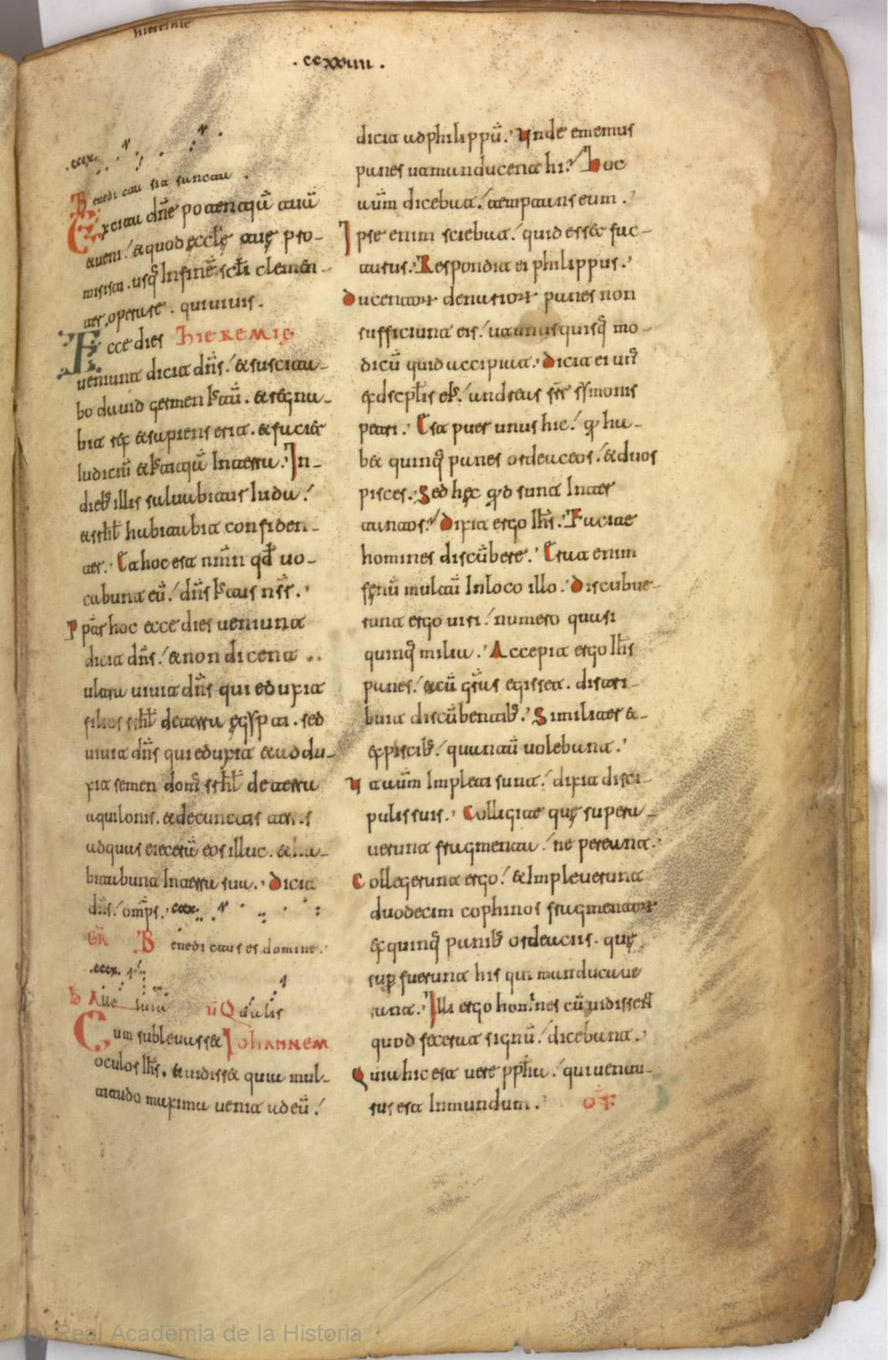 hieremie
.ccxxiiii.
Benedicta sit sanctam.
Excita dñe potentiã tuã
& ueni. & quod ęcclę tuę pro-
misisti. usq; In finẽ sc̃li clemen-
ter operare. qui uiuis.
Ecce dies hieremię
ueniunt dicit dñs. & suscita-
bo dauid germen iustũ. & regna-
bit rex & sapiens erit. & faciet
Iudiciũ & iustitiã In terra. In
dieb; illis saluabitur Iuda.
& isrl̃ habitabit confiden-
ter. Et hoc est nm̃n qđ uo-
cabunt eũ. dñs iustus nr̃.
Ppter hoc ecce dies ueniunt
dicit dñs. & non dicent
ultra uiuit dñs qui eduxit
filios isrl̃ de terra ęgypti. sed
uiuit dñs qui eduxit & addu-
xit semen domꝰ isrl̃ de terra
aquilonis. & de cunctis terris
ad quas eiecerã eos illuc. & ha-
bitabunt In terra sua. Dicit
dñs omps̃.
Benedictus es domine.
Alleluia
Cum subleuasset Iohannem
oculos Ihs̃. & uidisset quia mul-
titudo maxima uenit ad eũ.
dicit ad philippũ. Unde ememus
panes ut manducent hi. Hoc
autẽ dicebat. temptans eum.
Ipse enim sciebat. quid esset fac-
turus. Respondit ei philippus.
Ducentorum denariorum panes non
sufficiunt eis. ut unusquisq; mo-
dicũ quid accipiat. Dicit ei unꝰ
ex discipl̃is eiꝰ. andreas fr̃ simonis
petri. Est puer unus hic. qui ha-
bet quinq; panes ordeaceos. & duos
pisces. Sed hęc quid sunt Inter
tantos. Dixit ergo Ihs̃. Facite
homines discũbere. Erat enim
fęnũ multũ In loco illo. Discubue-
runt ergo uiri. numero quasi
quinq; milia. Accepit ergo Ihs̃
panes. & cũ grãs egisset. distri-
buit discũbentib;. Similiter &
ex piscib;. quantũ uolebant.
Ut autẽ Impleti sunt. dixit disci-
pulis suis. Colligite quę supera-
uerunt fragmenta. ne pereant.
Collegerunt ergo. & Impleuerunt
duodecim cophinos fragmentorum
ex quinq; panib; ordeaciis. quę
sup̱fuerunt his qui manducaue-
runt. Illi ergo homines cũ uidissent
quod fecerat signũ. dicebant.
Quia hic est uere ppħa. qui uentu-
rus est In mundum. of̃